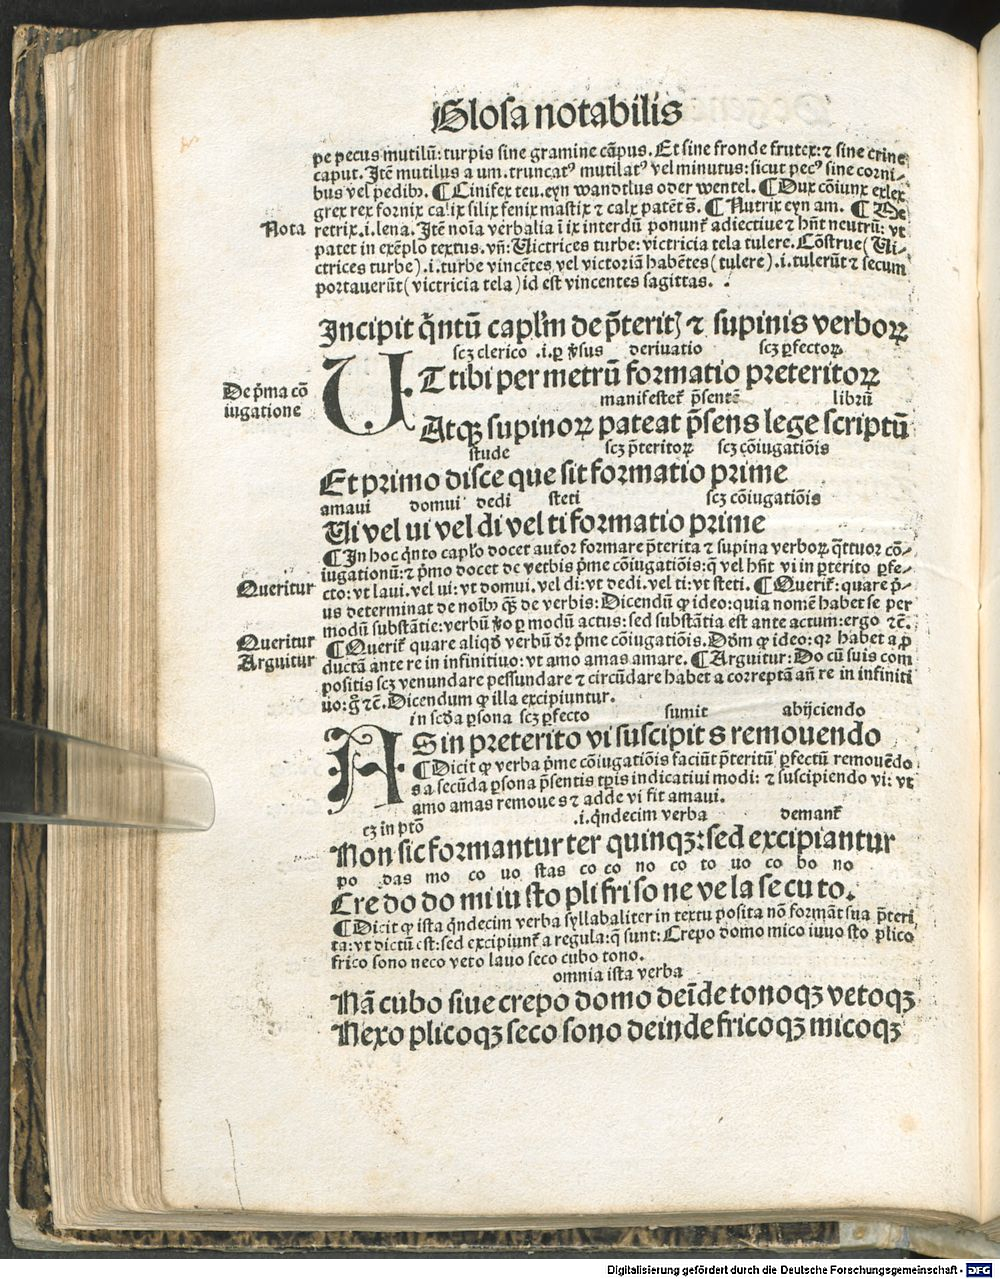 Glosa notabilis
pe pecus mutilū: turpis sine gramine cāpus. Et sine fronde frutex: ⁊ sine crine
caput. Itē mutilus a um. truncatꝰ mutilatꝰ vel minutus: sicut pecꝰ sine corni-
bus vel pedibꝫ. ¶ Cinifex teu. eyn wandtlus oder wentel. ¶ Dux cōiunx exlex
grex rex fornix calix silix fenix mastix ⁊ calx patēt s̄. ¶ Nutrix eyn am. ¶ Me
Nota
retrix .i. lena. Itē noīa verbalia ī ix interdū ponunt᷑ adiectiue ⁊ hn̄t neutrū: vt
patet in exēplo textus. vn̄: Uictrices turbe: victricia tela tulere. Cōstrue (Ui-
ctrices turbe) .i. turbe vincētes vel victoriā habētes (tulere) .i. tulerūt ⁊ secum
portauerūt (victricia tela) id est vincentes sagittas.
Incipit q̄ntū capl'm de p̄teritꝭ ⁊ supinis verboꝝ
scꝫ clerico .i. ꝑ v̄sus deriuatio scꝫ ꝑfectoꝝ
UT tibi per metrū formatio preteritoꝝ
De p̄ma cō
iugatione
manifestet᷑ p̄sentē librū
Atqꝫ supinoꝝ pateat p̄sens lege scriptū
stude scꝫ p̄teritoꝝ scꝫ cōiugatiōis
Et primo disce que sit formatio prime
amaui domui dedi steti scꝫ cōiugatiōis
Ui vel ui vel di vel ti formatio prime
¶ In hoc q̄nto caplo docet autor formare p̄terita ⁊ supina verboꝝ q̄ttuor cō-
iugationū: ⁊ p̄mo docet de verbis p̄me cōiugatiōis: q̄ vel hn̄t vi in p̄terito ꝑfe-
Queritur
cto: vt laui. vel ui: vt domui. vel di: vt dedi. vel ti: vt steti. ¶ Querit᷑: quare p̄-
us determinat de noībꝫ qꝫ̄ de verbis: Dicendū ꝙ ideo: quia nomē habet se per
modū substātie: verbū v̄o ꝑ modū actus: sed substātia est ante actum: ergo ⁊c̄.
Queritur
¶ Querit᷑ quare aliqd̄ verbū dr̄ p̄me cōiugatiōis. Dd̄m ꝙ ideo: qꝛ habet a ꝓ
Arguitur
ductā ante re in infinitiuo: vt amo amas amare. ¶ Arguitur: Do cū suis com
positis scꝫ venundare pessundare ⁊ circūdare habet a correptā an̄ re in infiniti
uo: g̊ ⁊c̄. Dicendum ꝙ illa excipiuntur.
in scd̄a ꝑsona scꝫ ꝑfecto sumit abijciendo
AS in preterito vi suscipit s remouendo
¶ Dicit ꝙ verba p̄me cōiugatiōis faciūt p̄teritū ꝑfectū remouēdo
s a secūda ꝑsona p̄sentis tꝑis indicatiui modi: ⁊ suscipiendo vi: vt
amo amas remoue s ⁊ adde vi fit amaui.
cꝫ in ptō .i. q̄ndecim verba demant᷑
Non sic formantur ter quinqꝫ: sed excipiantur
po das mo co uo stas co co no co to uo co bo no
Cre do do mi iu sto pli fri so ne ve la se cu to.
¶ Dicit ꝙ ista q̄ndecim verba syllabaliter in textu posita nō formāt sua p̄teri
ta: vt dictū est: sed excipiunt᷑ a regula: q̄ sunt: Crepo domo mico iuuo sto plico
frico sono neco veto lauo seco cubo tono.
omnia ista verba
Nā cubo siue crepo domo deīde tonoqꝫ vetoqꝫ
Nexo plicoqꝫ seco sono deinde fricoqꝫ micoqꝫ
Digitalisierung gefördert durch die Deutsche Forschungsgemeinschaft - DFG